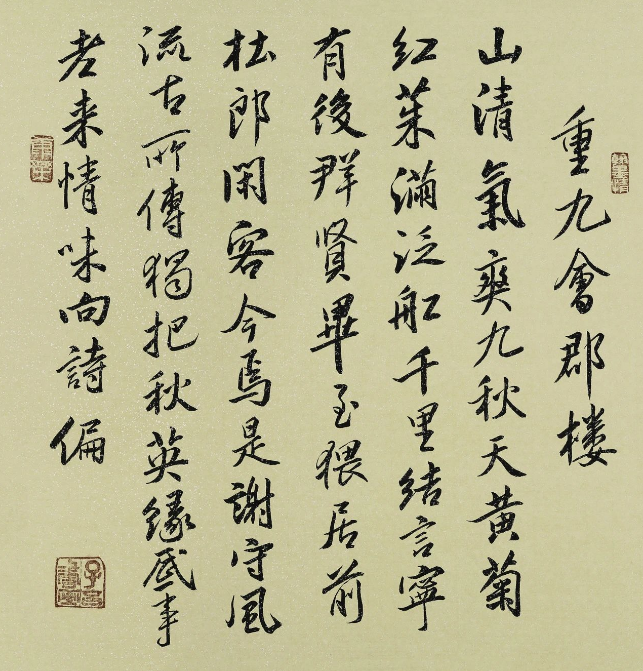 重九會郡楼
山清氣爽九秋天黄菊
紅茱滿泛舡千里結言寧
有後群賢畢至猥居前
杜郎閑客今焉是謝守風
流古所傳獨把秋英緣底事
老来情味向詩偏